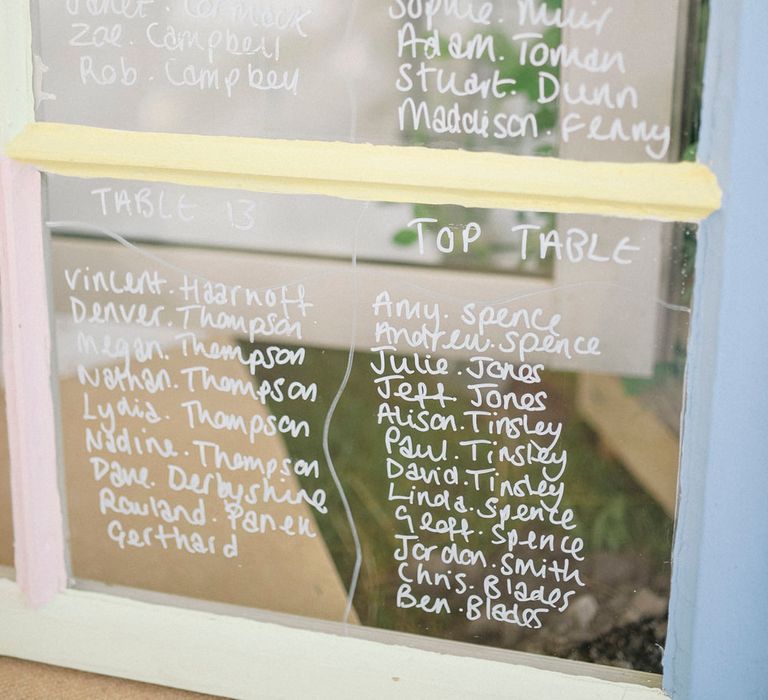 Janet. Cormack
Zoe. Campbell
Rob. Campbell
Sophie. Muir
Adam. Toman
Stuart. Dunn
Maddison. Fenny
TABLE 13
Vincent. Haarnoff
Denver. Thompson
Megan. Thompson
Nathan. Thompson
Lydia. Thompson
Nadine. Thompson
Dave. Derbyshire
Rowland. Panek
Gerthard
TOP TABLE
Amy. Spence
Andrew. Spence
Julie. Jones
Jeff. Jones
Alison. Tinsley
Paul. Tinsley
David. Tinsley
Linda. Spence
Geoff. Spence
Jordon. Smith
Chris. Blades
Ben. Blades